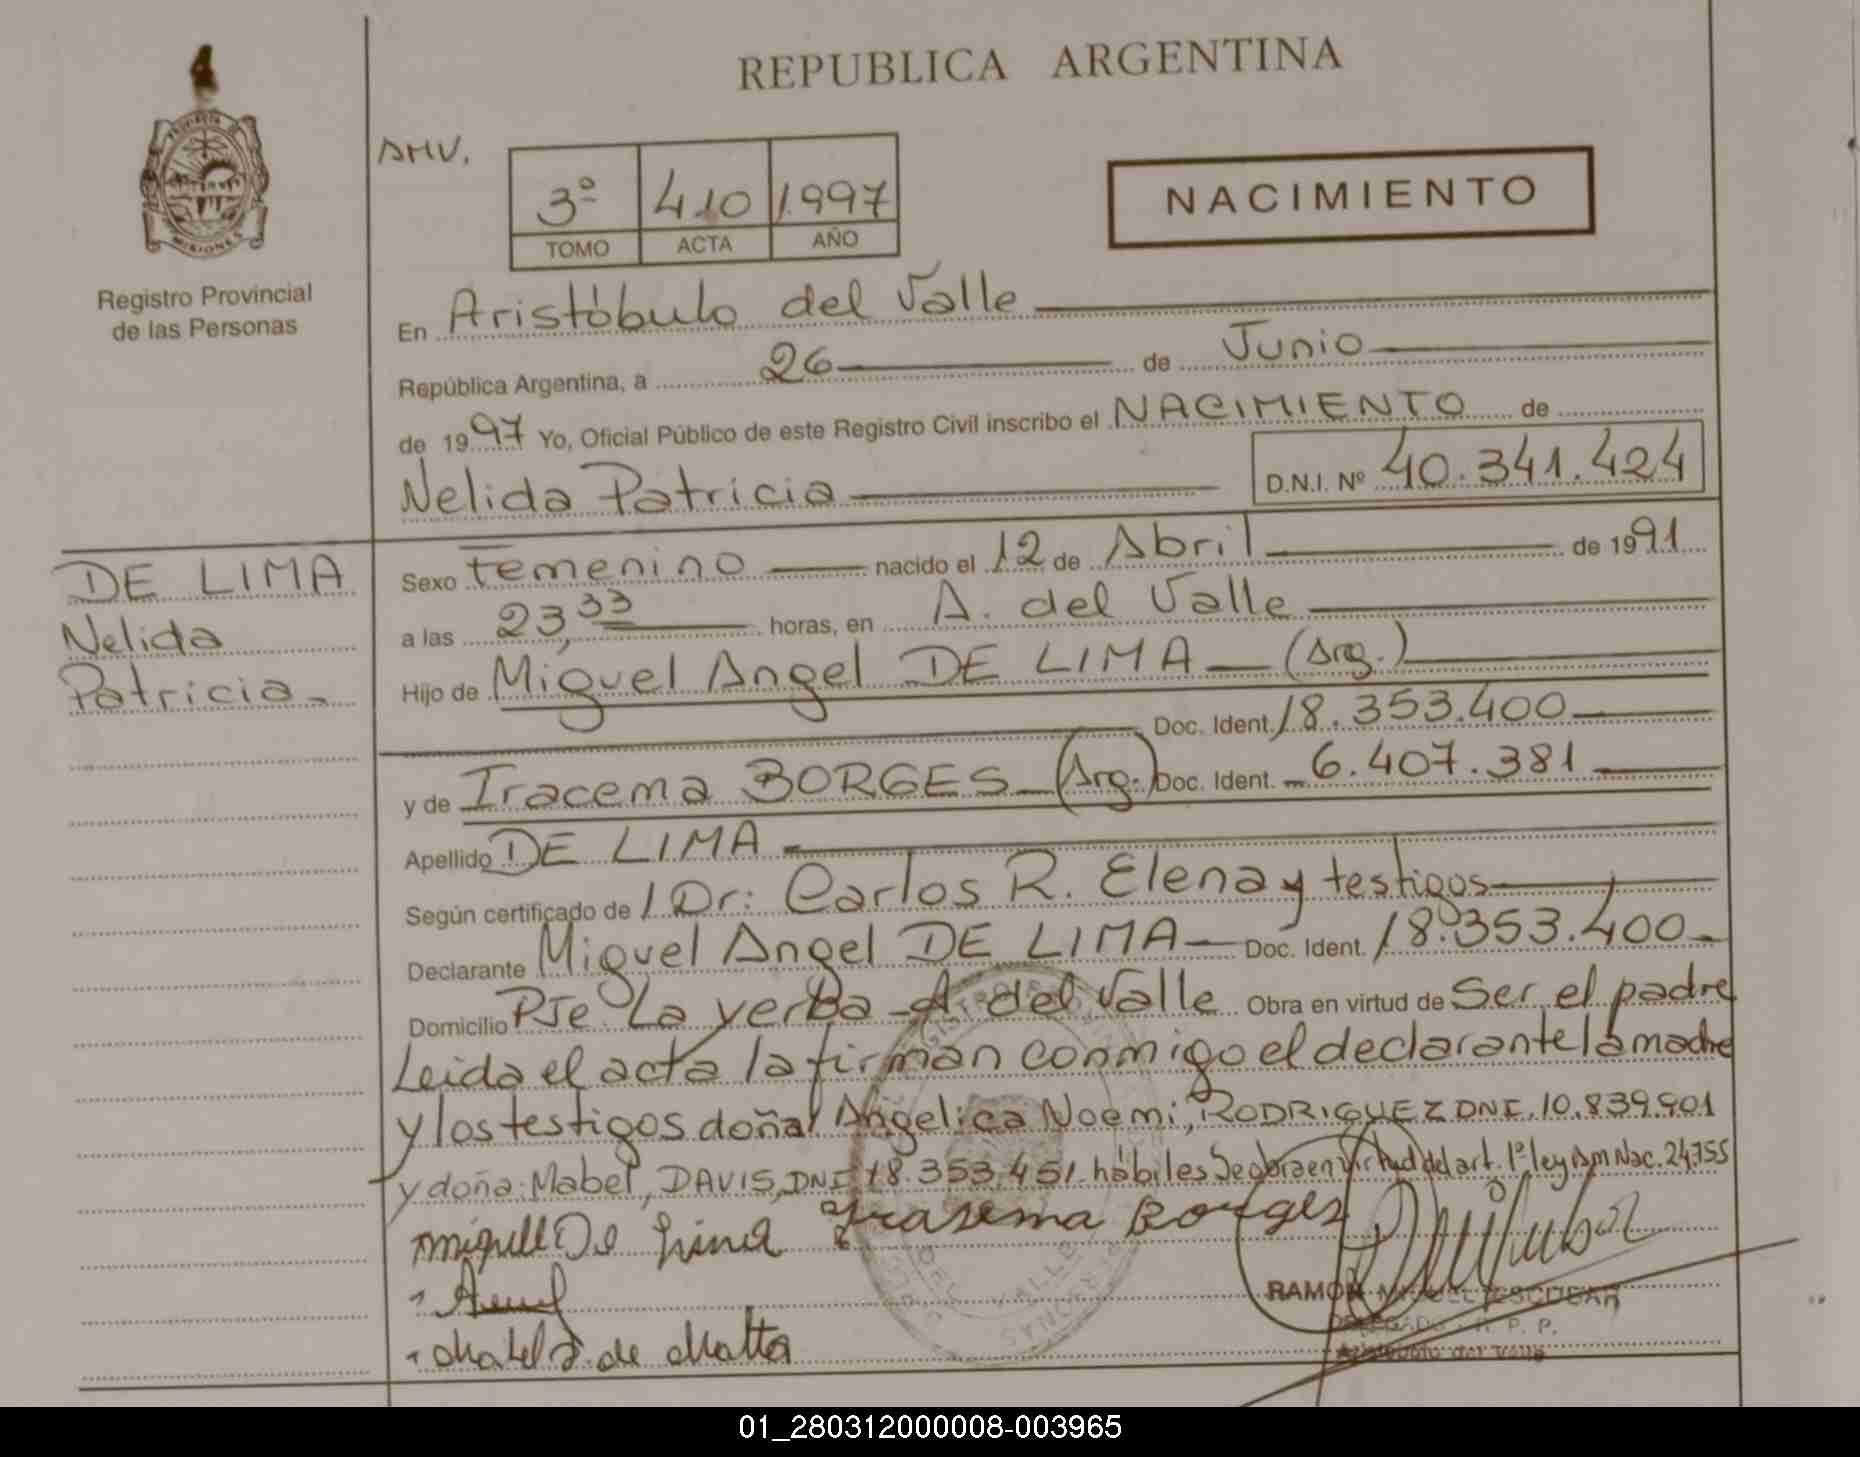 REPUBLICA ARGENTINA
PROVINCIA
MISIONES
Registro Provincial
de las Personas
AMV.
3º 410 1997
TOMO ACTA AÑO
NACIMIENTO
En Aristóbulo del Valle
República Argentina, a 26 de Junio
de 1997 Yo, Oficial Público de este Registro Civil inscribo el NACIMIENTO de
Nelida Patricia D.N.I. Nº 40.341.424
DE LIMA
Nelida
Patricia
Sexo Femenino nacido el 12 de Abril de 1991
a las 23,33 horas, en A. del Valle
Hijo de Miguel Angel DE LIMA (Arg.)
Doc. Ident. 18.353.400
y de Iracema BORGES (Arg.) Doc. Ident. 6.407.381
Apellido DE LIMA
Según certificado de / Dr: Carlos R. Elena y testigos
Declarante Miguel Angel DE LIMA Doc. Ident. 18.353.400
Domicilio PJe. La yerba - A. del Valle Obra en virtud de Ser el padre
Leida el acta la firman conmigo el declarante la madre
y los testigos doña Angelica Noemi, RODRIGUEZ DNI. 10.839.901
y doña Mabel, DAVIS, DNI 18.353.451 hábiles Se obra en virtud del art. 1º ley Nac. 24.755
Miguel De Lima Irasema Borges
RAMON MIGUEL ESCOBAR
DELEGADO R. P. P.
Aristobulo del Valle
de Matto
01_280312000008-003965